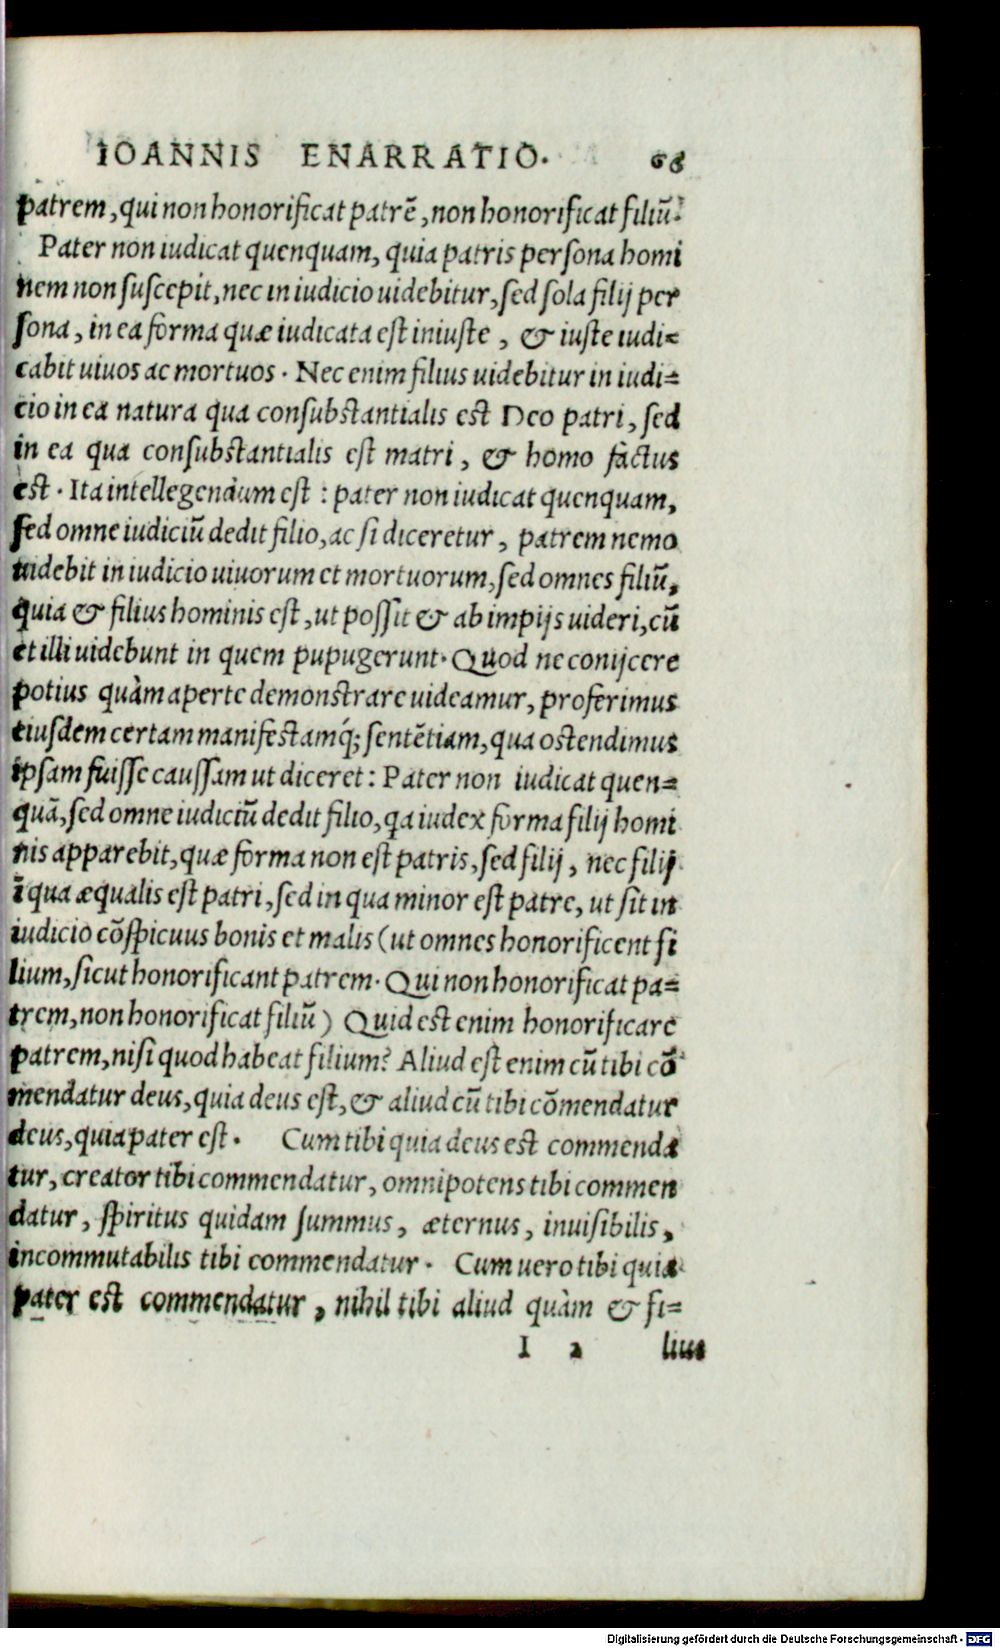 IOANNIS ENARRATIO. 68
patrem, qui non honorificat patrē, non honorificat filiū.
Pater non iudicat quenquam, quia patris persona homi
nem non suscepit, nec in iudicio uidebitur, sed sola filij per
sona, in ea forma quæ iudicata est iniuste, & iuste iudi=
cabit uiuos ac mortuos. Nec enim filius uidebitur in iudi=
cio in ea natura qua consubstantialis est Deo patri, sed
in ea qua consubstantialis est matri, & homo factus
est. Ita intellegendum est: pater non iudicat quenquam,
sed omne iudiciū dedit filio, ac si diceretur, patrem nemo
uidebit in iudicio uiuorum et mortuorum, sed omnes filiū,
quia & filius hominis est, ut possit & ab impijs uideri, cū
et illi uidebunt in quem pupugerunt. Quod ne conijcere
potius quàm aperte demonstrare uideamur, proferimus
eiusdem certam manifestamq́; sentētiam, qua ostendimus
ipsam fuisse caussam ut diceret: Pater non iudicat quen=
quā, sed omne iudiciū dedit filio, qa iudex forma filij homi
nis apparebit, quæ forma non est patris, sed filij, nec filij
ī qua æqualis est patri, sed in qua minor est patre, ut sit in
iudicio cōspicuus bonis et malis (ut omnes honorificent fi
lium, sicut honorificant patrem. Qui non honorificat pa=
trem, non honorificat filiū) Quid est enim honorificare
patrem, nisi quod habeat filium? Aliud est enim cū tibi cō
mendatur deus, quia deus est, & aliud cū tibi cōmendatur
deus, quia pater est. Cum tibi quia deus est commenda
tur, creator tibi commendatur, omnipotens tibi commen
datur, spiritus quidam summus, æternus, inuisibilis,
incommutabilis tibi commendatur. Cum uero tibi quia
pater est commendatur, nihil tibi aliud quàm & fi=
I 2 lius
Digitalisierung gefördert durch die Deutsche Forschungsgemeinschaft - DFG